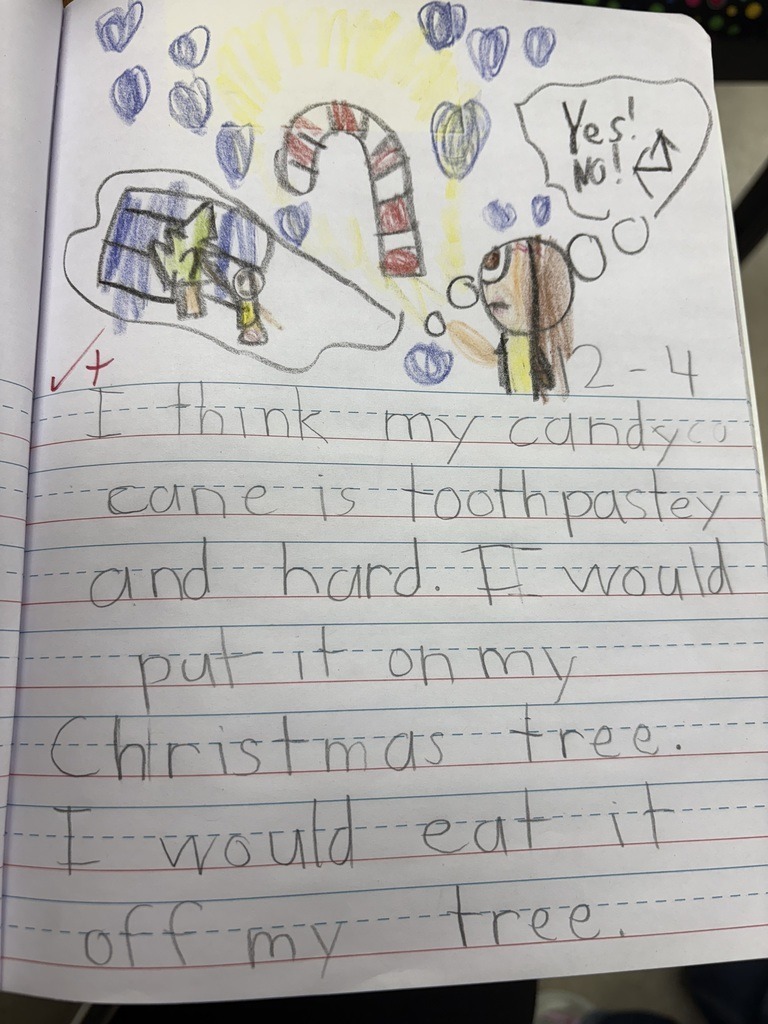 Yes!
NO!
2-4
I think my candyco
cane is toothpastey
and hard. I would
put it on my
Christmas tree.
I would eat it
off my tree.